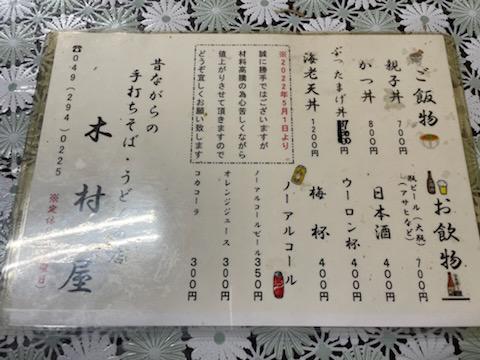 ご飯物
親子丼 700円
かつ丼 800円
ぶったまげ丼
海老天丼 1200円
※2022年5月1日より
誠に勝手ではございますが
材料高騰の為心苦しくながら
値上がりさせて頂きますので
どうぞ宜しくお願い致します
お飲物
瓶ビール(大瓶) 700円
(アサヒなど)
日本酒 400円
ウーロン杯 400円
梅杯 400円
ノーアルコール
ノーアルコールビール 350円
オレンジジュース 300円
コカコーラ 300円
昔ながらの
手打ちそば・うどん
木村屋
☎049(294)0225
※定休 曜日